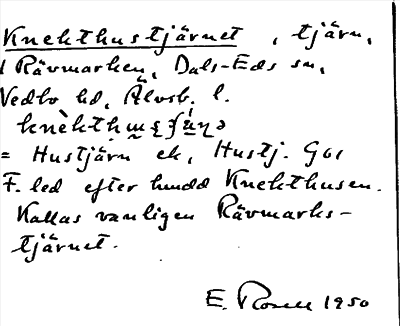 Knekthustjärnet, tjärn,
i Rävmarken, Dals-Eds sn,
Vedbo hd, Älvsb. l.
= Hustjärn ek, Hustj. Gs1
F. led efter hundd Knekthusen.
Kallas vanligen Rävmarks-
tjärnet.
E. Rosell 1950